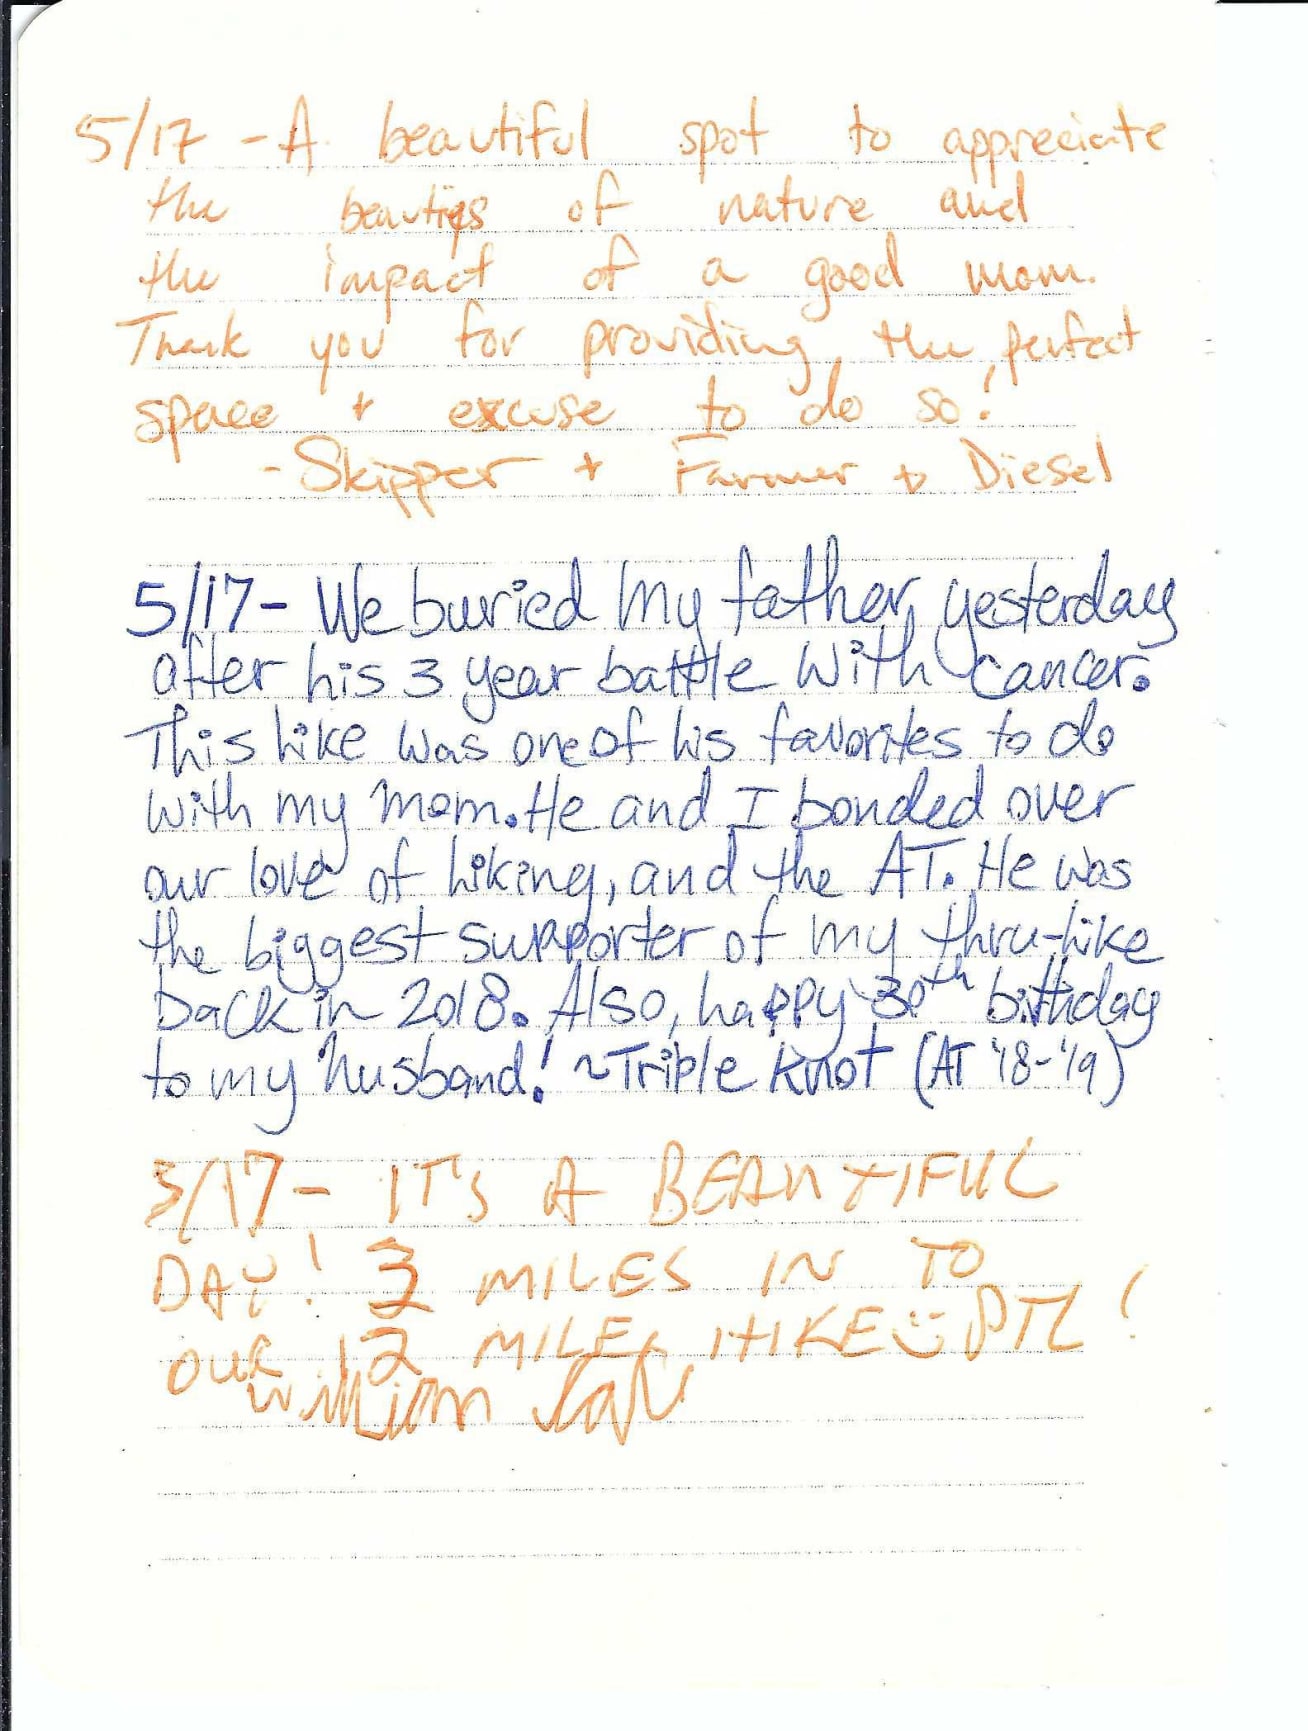 5/17 - A beautiful spot to appreciate
the beauties of nature and
the impact of a good mom.
Thank you for providing the perfect
space + excuse to do so!
- Skipper + Farmer + Diesel
5/17- We buried my father yesterday
after his 3 year battle with cancer.
This hike was one of his favorites to do
with my mom. He and I bonded over
our love of hiking, and the AT. He was
the biggest supporter of my thru-hike
back in 2018. Also, happy 30th birthday
to my husband! ~Triple Knot (AT '18-'19)
5/17- IT'S A BEAUTIFUL
DAY! 3 MILES IN TO
OUR 12 MILE HIKE☺ PTL!
William